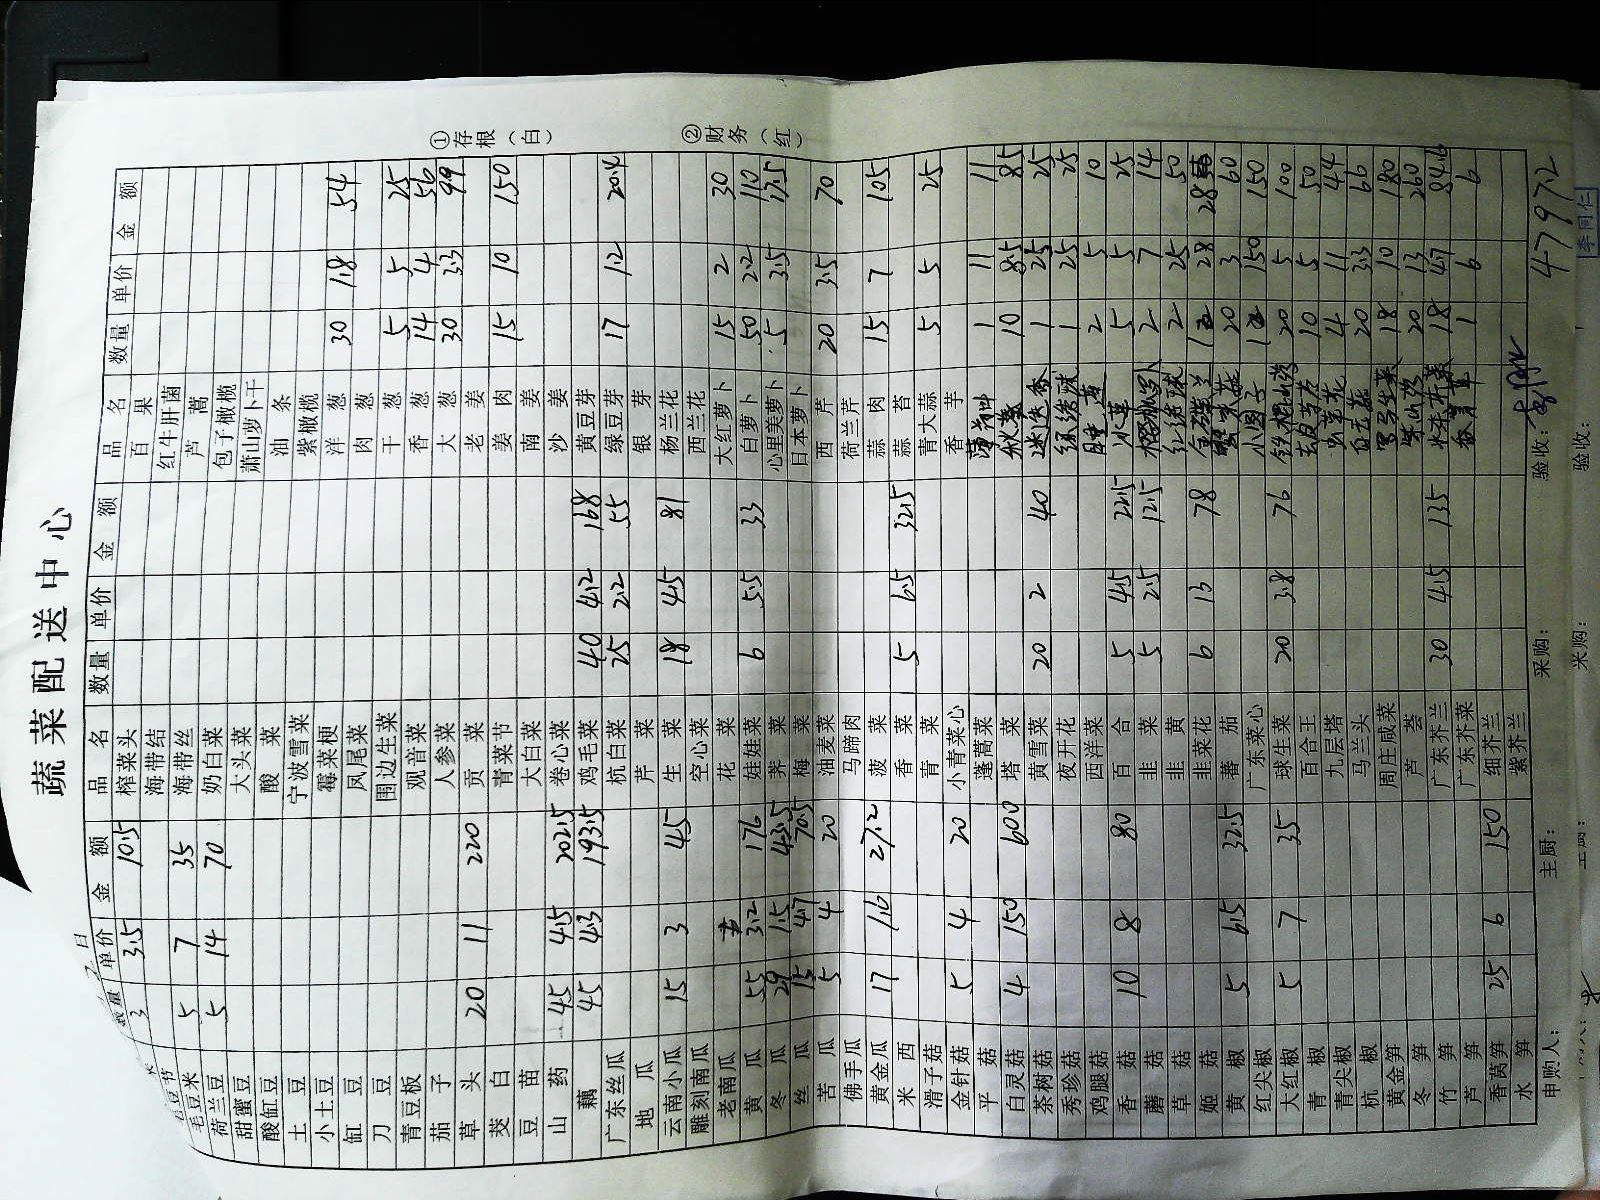 蔬菜配送中心
日
数量 单价 金额 品名 数量 单价 金额 品名 数量 单价 金额
3 3.5 10.5 榨菜头 百果
毛豆节 海带结 红牛肝菌
毛豆米 5 7 35 海带丝 芦蒿
荷兰豆 5 14 70 奶白菜 包子橄榄
甜蜜豆 大头菜 萧山萝卜干
酸缸豆 酸菜 油条
土豆 宁波雪菜 紫橄榄
小土豆 霉菜梗 洋葱 30 1.8 54
缸豆 凤尾菜 肉葱
刀豆 围边生菜 干葱 5 5 25
青豆板 观音菜 香葱 14 4 56
茄子 人参菜 大葱 30 3.3 99
草头 20 11 220 贡菜 老姜
茭白 青菜节 姜肉 15 10 150
豆苗 大白菜 南姜
山药 45 4.5 202.5 卷心菜 沙姜
藕 45 4.3 193.5 鸡毛菜 40 4.2 168 黄豆芽
广东丝瓜 杭白菜 25 2.2 55 绿豆芽 17 1.2 20.4
地瓜 芹菜 银芽
云南小瓜 15 3 45 生菜 18 4.5 81 杨兰花
雕刻南瓜 空心菜 西兰花
老南瓜 花菜 大红萝卜 15 2 30
黄瓜 55 3.2 176 娃娃菜 6 5.5 33 白萝卜 50 2.2 110
冬瓜 29 1.5 43.5 荠菜 心里美萝卜 5 3.5 17.5
丝瓜 15 4.7 70.5 梅菜 日本萝卜
苦瓜 5 4 20 油麦菜 西芹 20 3.5 70
佛手瓜 马蹄肉 荷兰芹
黄金瓜 17 1.6 27.2 菠菜 蒜肉 15 7 105
米西 香菜 5 6.5 32.5 蒜苔
滑子菇 青菜 青大蒜 5 5 25
金针菇 5 4 20 小青菜心 香芋
平菇 蓬蒿菜 薄荷叶 1 11 11
白灵菇 4 150 600 塔菜 秋葵 10 8.5 85
茶树菇 黄雪菜 20 2 40 迷迭香 1 25 25
秀珍菇 夜开花 绿绣球 1 25 25
鸡腿菇 西洋菜 睡莲 2 5 10
香菇 10 8 80 百合 5 4.5 22.5 水草 5 5 25
蘑菇 韭菜 5 2.5 12.5 樱桃萝卜 2 7 14
草菇 韭黄 红绣球 2 25 50
姬菇 韭菜花 6 13 78 28 28
黄椒 5 6.5 32.5 蕃茄 20 3 60
红尖椒 广东菜心 小圆子 150 150
大红椒 5 7 35 球生菜 20 3.8 76 铁棍山药 20 5 100
青椒 百合王 10 5 50
青尖椒 九层塔 4 11 44
杭椒 马兰头 20 3.3 66
黄金笋 周庄咸菜 罗马生菜 18 10 180
冬笋 芦荟 紫山药 20 13 260
竹笋 广东芥兰 30 4.5 135 18 4.7 84.6
芦笋 广东芥菜 1 6 6
香莴笋 25 6 150 细芥兰
水笋 紫芥兰
申购人： 主厨： 采购： 验收： 4797.2
李同仁
采购： 验收：
①存根（白）
②财务（红）